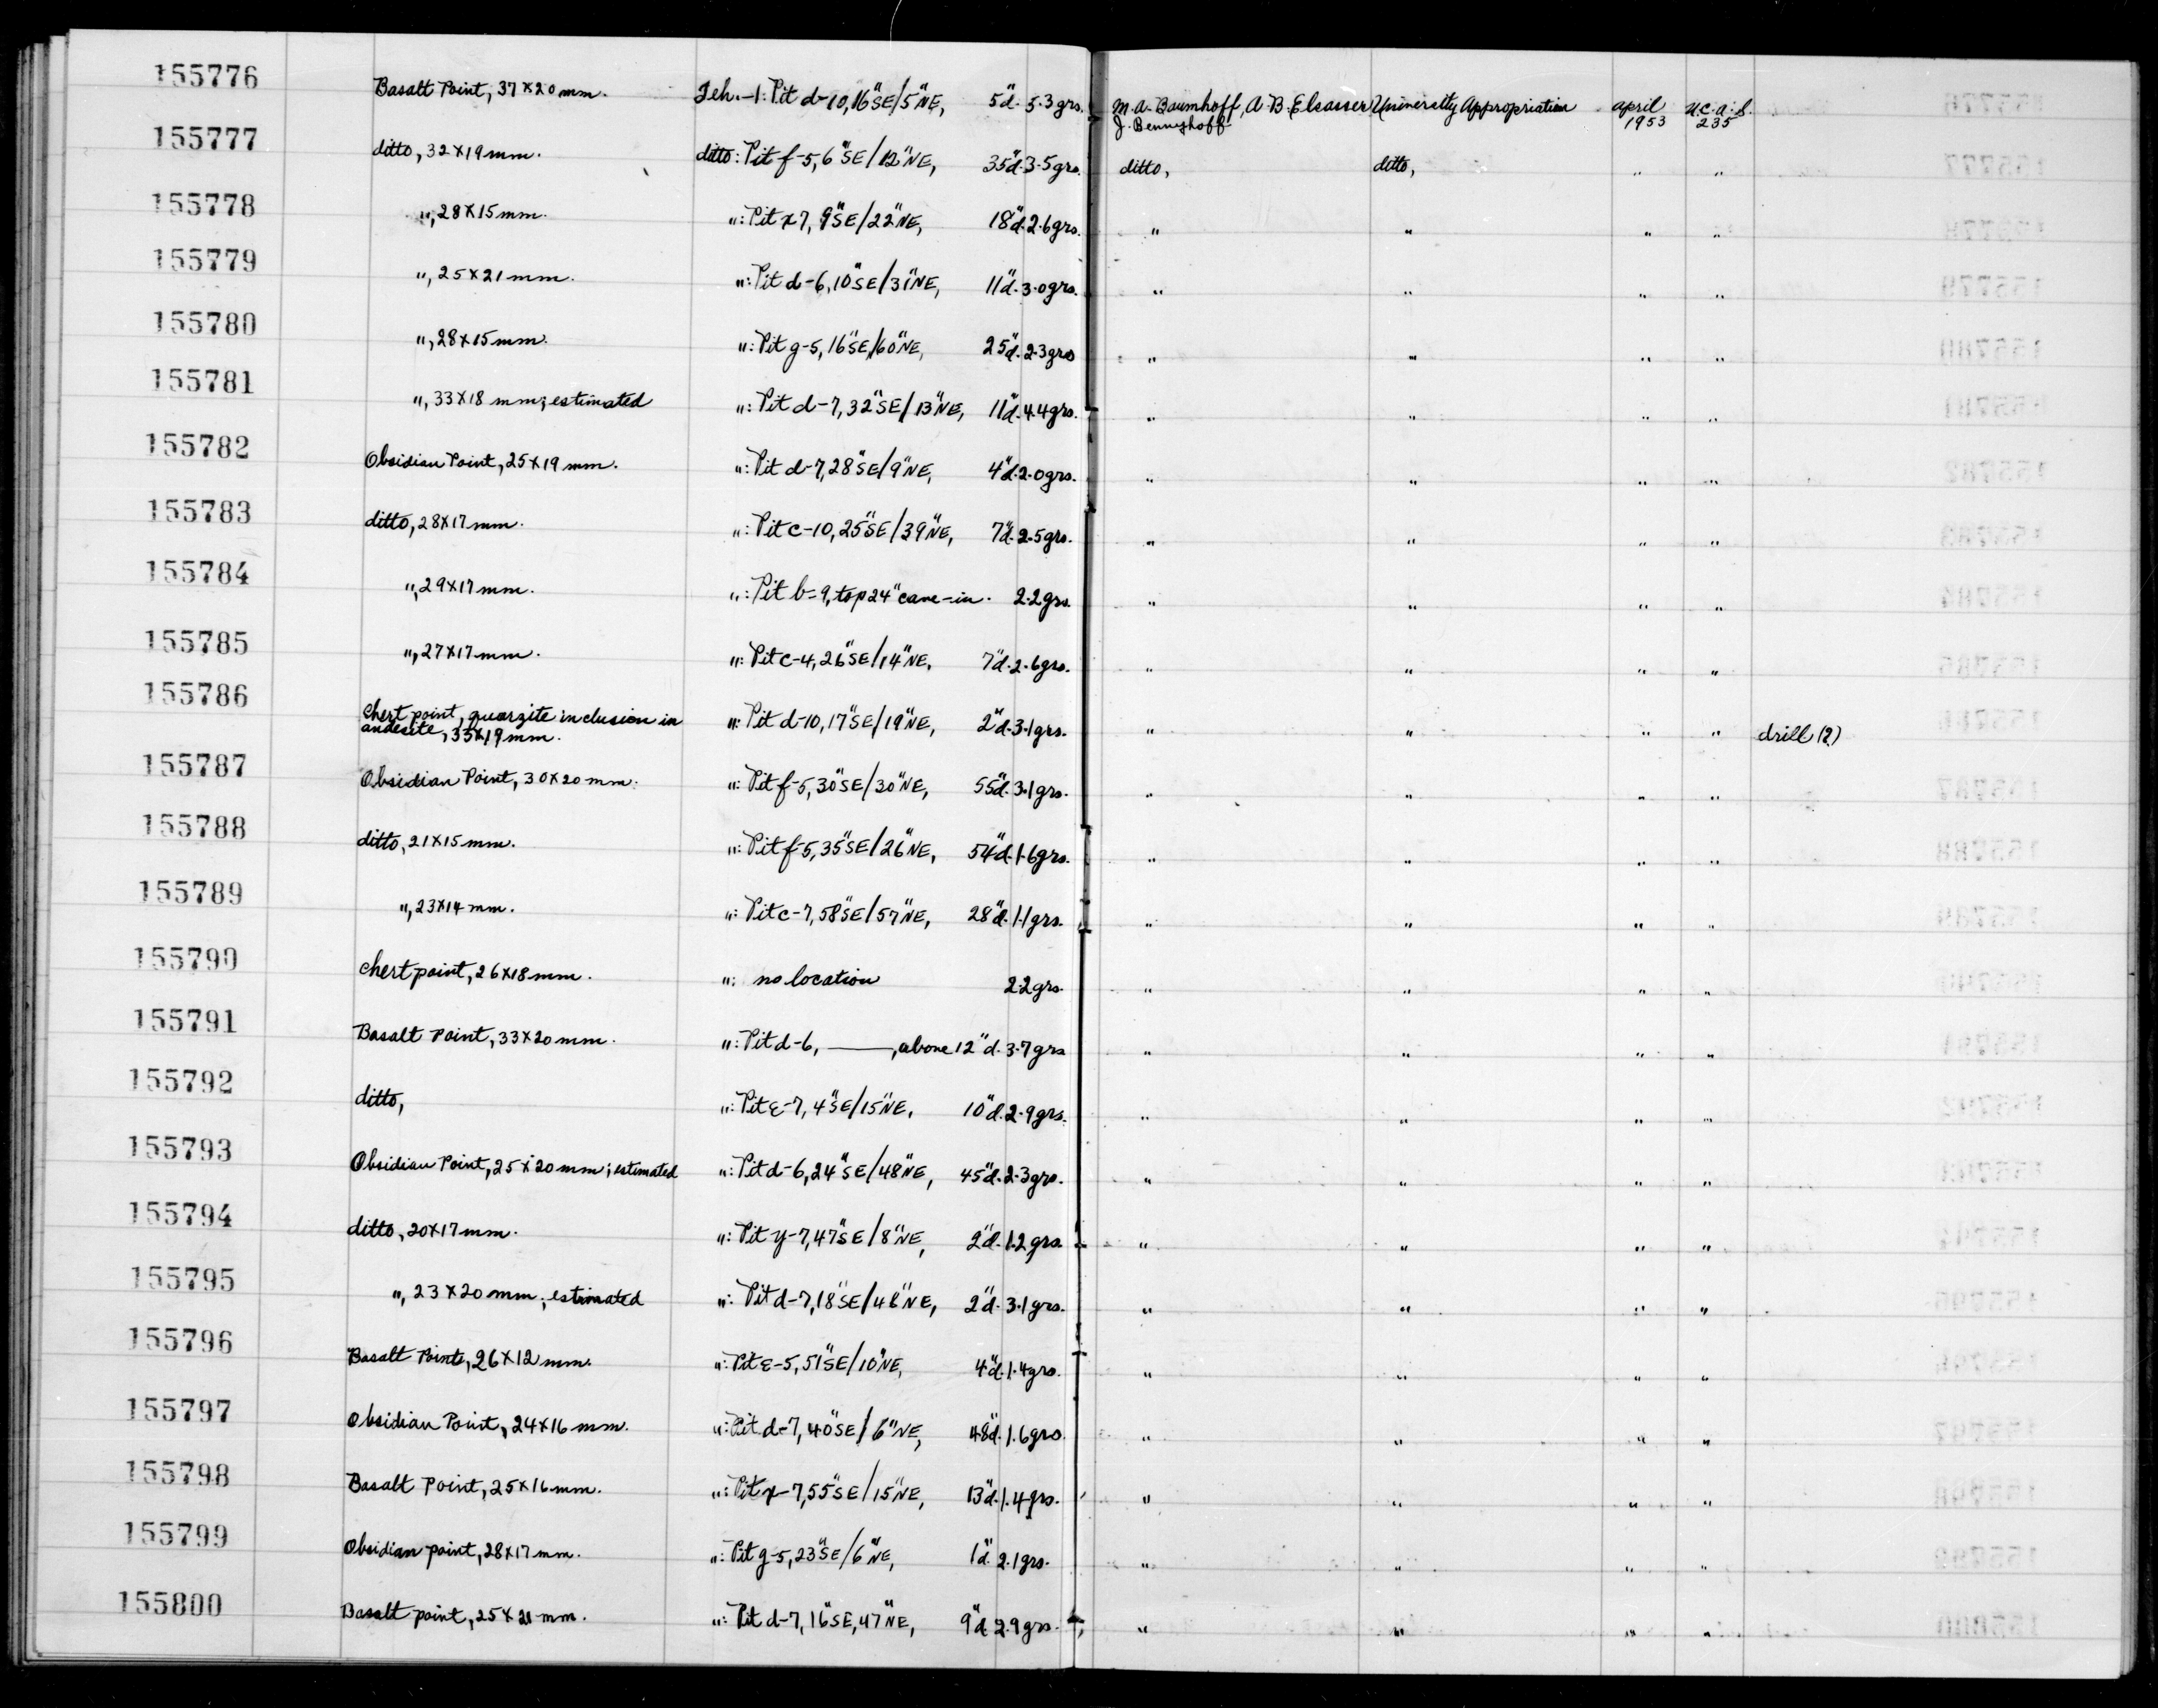 155776 Basalt Point, 37 x 20 mm. Teh.-1: Pit d-10, 16"SE/5"NE, 5"d. 5.3 grs. M.A. Baumhoff, A.B. Elsasser University Appropriation april U.C.A.S.
J. Bennyhoff 1953 235
155777 ditto, 32 x 19 mm. ditto: Pit f-5, 6"SE/12"NE, 35"d. 3.5 grs. ditto, ditto, " "
155778 ", 28 x 15 mm. ": Pit x7, 9"SE/22"NE, 18"d. 2.6 grs. " " " "
155779 ", 25 x 21 mm. ": Pit d-6, 10"SE/31"NE, 11"d. 3.0 grs. " " " "
155780 ", 28 x 15 mm. ": Pit g-5, 16"SE/60"NE, 25"d. 2.3 grs " " " "
155781 ", 33 x 18 mm; estimated ": Pit d-7, 32"SE/13"NE, 11"d. 4.4 grs. " " " "
155782 Obsidian Point, 25 x 19 mm. ": Pit d-7, 28"SE/9"NE, 4"d. 2.0 grs. " " " "
155783 ditto, 28 x 17 mm. ": Pit c-10, 25"SE/39"NE, 7"d. 2.5 grs. " " " "
155784 ", 29 x 17 mm. ": Pit b-9, top 24" cave-in. 2.2 grs. " " " "
155785 ", 27 x 17 mm. ": Pit c-4, 26"SE/14"NE, 7"d. 2.6 grs. " " " "
155786 Chert point, quarzite inclusion in ": Pit d-10, 17"SE/19"NE, 2"d. 3.1 grs. " " " " drill (?)
andesite, 35 x 19 mm.
155787 Obsidian Point, 30 x 20 mm. ": Pit f-5, 30"SE/30"NE, 55"d. 3.1 grs. " " " "
155788 ditto, 21 x 15 mm. ": Pit f-5, 35"SE/26"NE, 54"d. 1.6 grs. " " " "
155789 ", 23 x 14 mm. ": Pit c-7, 58"SE/57"NE, 28"d. 1.1 grs. " " " "
155790 Chert point, 26 x 18 mm. ": no location 2.2 grs. " " " "
155791 Basalt Point, 33 x 20 mm. ": Pit d-6, ——, above 12"d. 3.7 grs " " " "
155792 ditto, ": Pit ε-7, 4"SE/15"NE, 10"d. 2.9 grs. " " " "
155793 Obsidian Point, 25 x 20 mm; estimated ": Pit d-6, 24"SE/48"NE, 45"d. 2.3 grs. " " " "
155794 ditto, 20 x 17 mm. ": Pit y-7, 47"SE/8"NE, 2"d. 1.2 grs. " " " "
155795 ", 23 x 20 mm; estimated ": Pit d-7, 18"SE/46"NE, 2"d. 3.1 grs. " " " "
155796 Basalt Points, 26 x 12 mm. ": Pit ε-5, 51"SE/10"NE, 4"d. 1.4 grs. " " " "
155797 Obsidian Point, 24 x 16 mm. ": Pit d-7, 40"SE/6"NE, 48"d. 1.6 grs. " " " "
155798 Basalt Point, 25 x 16 mm. ": Pit x-7, 55"SE/15"NE, 13"d. 1.4 grs. " " " "
155799 Obsidian point, 28 x 17 mm. ": Pit g-5, 23"SE/6"NE, 1"d. 2.1 grs. " " " "
155800 Basalt point, 25 x 21 mm. ": Pit d-7, 16"SE, 47"NE, 9"d 2.9 grs. " " " "